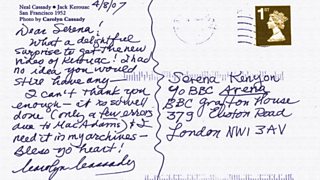 Neal Cassady • Jack Kerouac
San Francisco 1952
Photo by Carolyn Cassady
4/8/07
Dear Serena!
What a delightful
surprise to get the new
video of Kerouac! I had
no idea you would
still have any—
I can't thank you
enough — it is so well
done (only a few errors
due to MacAdams) & I
need it in my archives—
Bless yo heart!
Carolyn Cassady
1st
Serena Kenyon
c/o BBC Arena
BBC Grafton House
379 Euston Road
London NW1 3AV